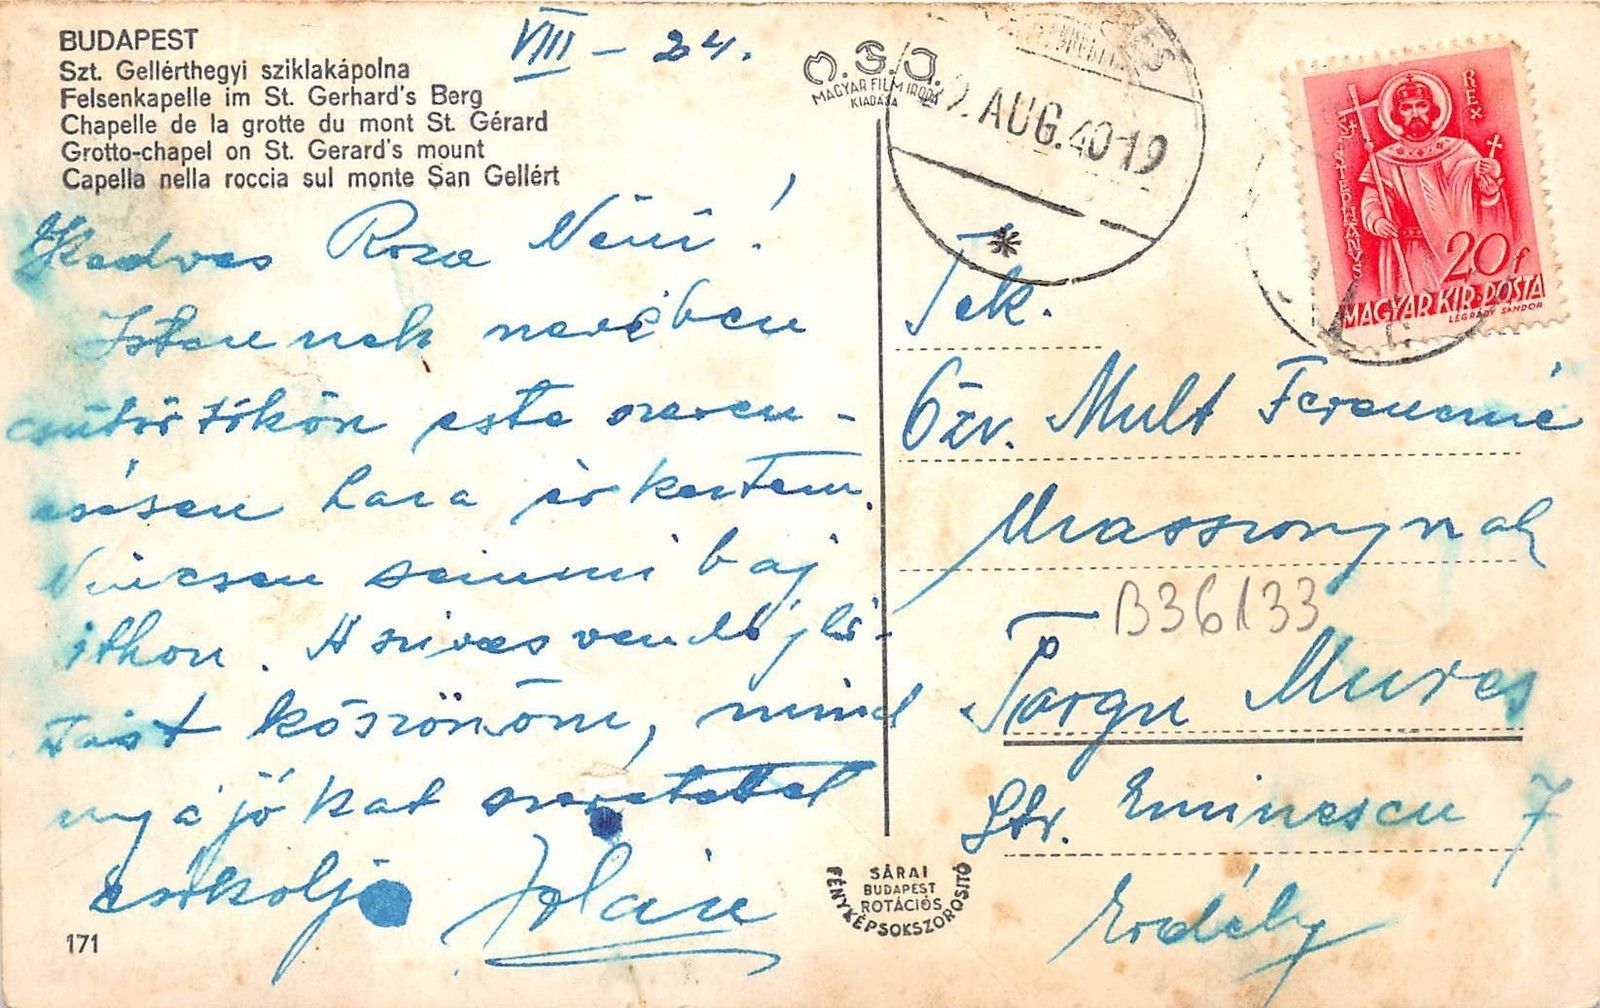 BUDAPEST
Szt. Gellérthegyi sziklakápolna
Felsenkapelle im St. Gerhard's Berg
Chapelle de la grotte du mont St. Gérard
Grotto-chapel on St. Gerard's mount
Capella nella roccia sul monte San Gellért
VIII – 24.
MAGYAR FILM IRODA
KIADÁSA
AUG. 40-19
REX
ST STEPHANVS
20f
MAGYAR KIR. POSTA
LEGRÁDY SÁNDOR
Kedves Roza Néni!
Istennek nevében
csütörtökön este szeren-
csésen haza érkeztem.
Nincsen semmi baj
itthon. A szives vendéglá-
tást köszönöm, mind
nyájókat szeretettel
csókolja
Tek.
Özv. Mult Ferencné
Urasszonynak
B36133
Targu Mures
Str. Eminescu 7
Erdély
SÁRAI
BUDAPEST
ROTÁCIÓS
FÉNYKÉPSOKSZOROSITÓ
171